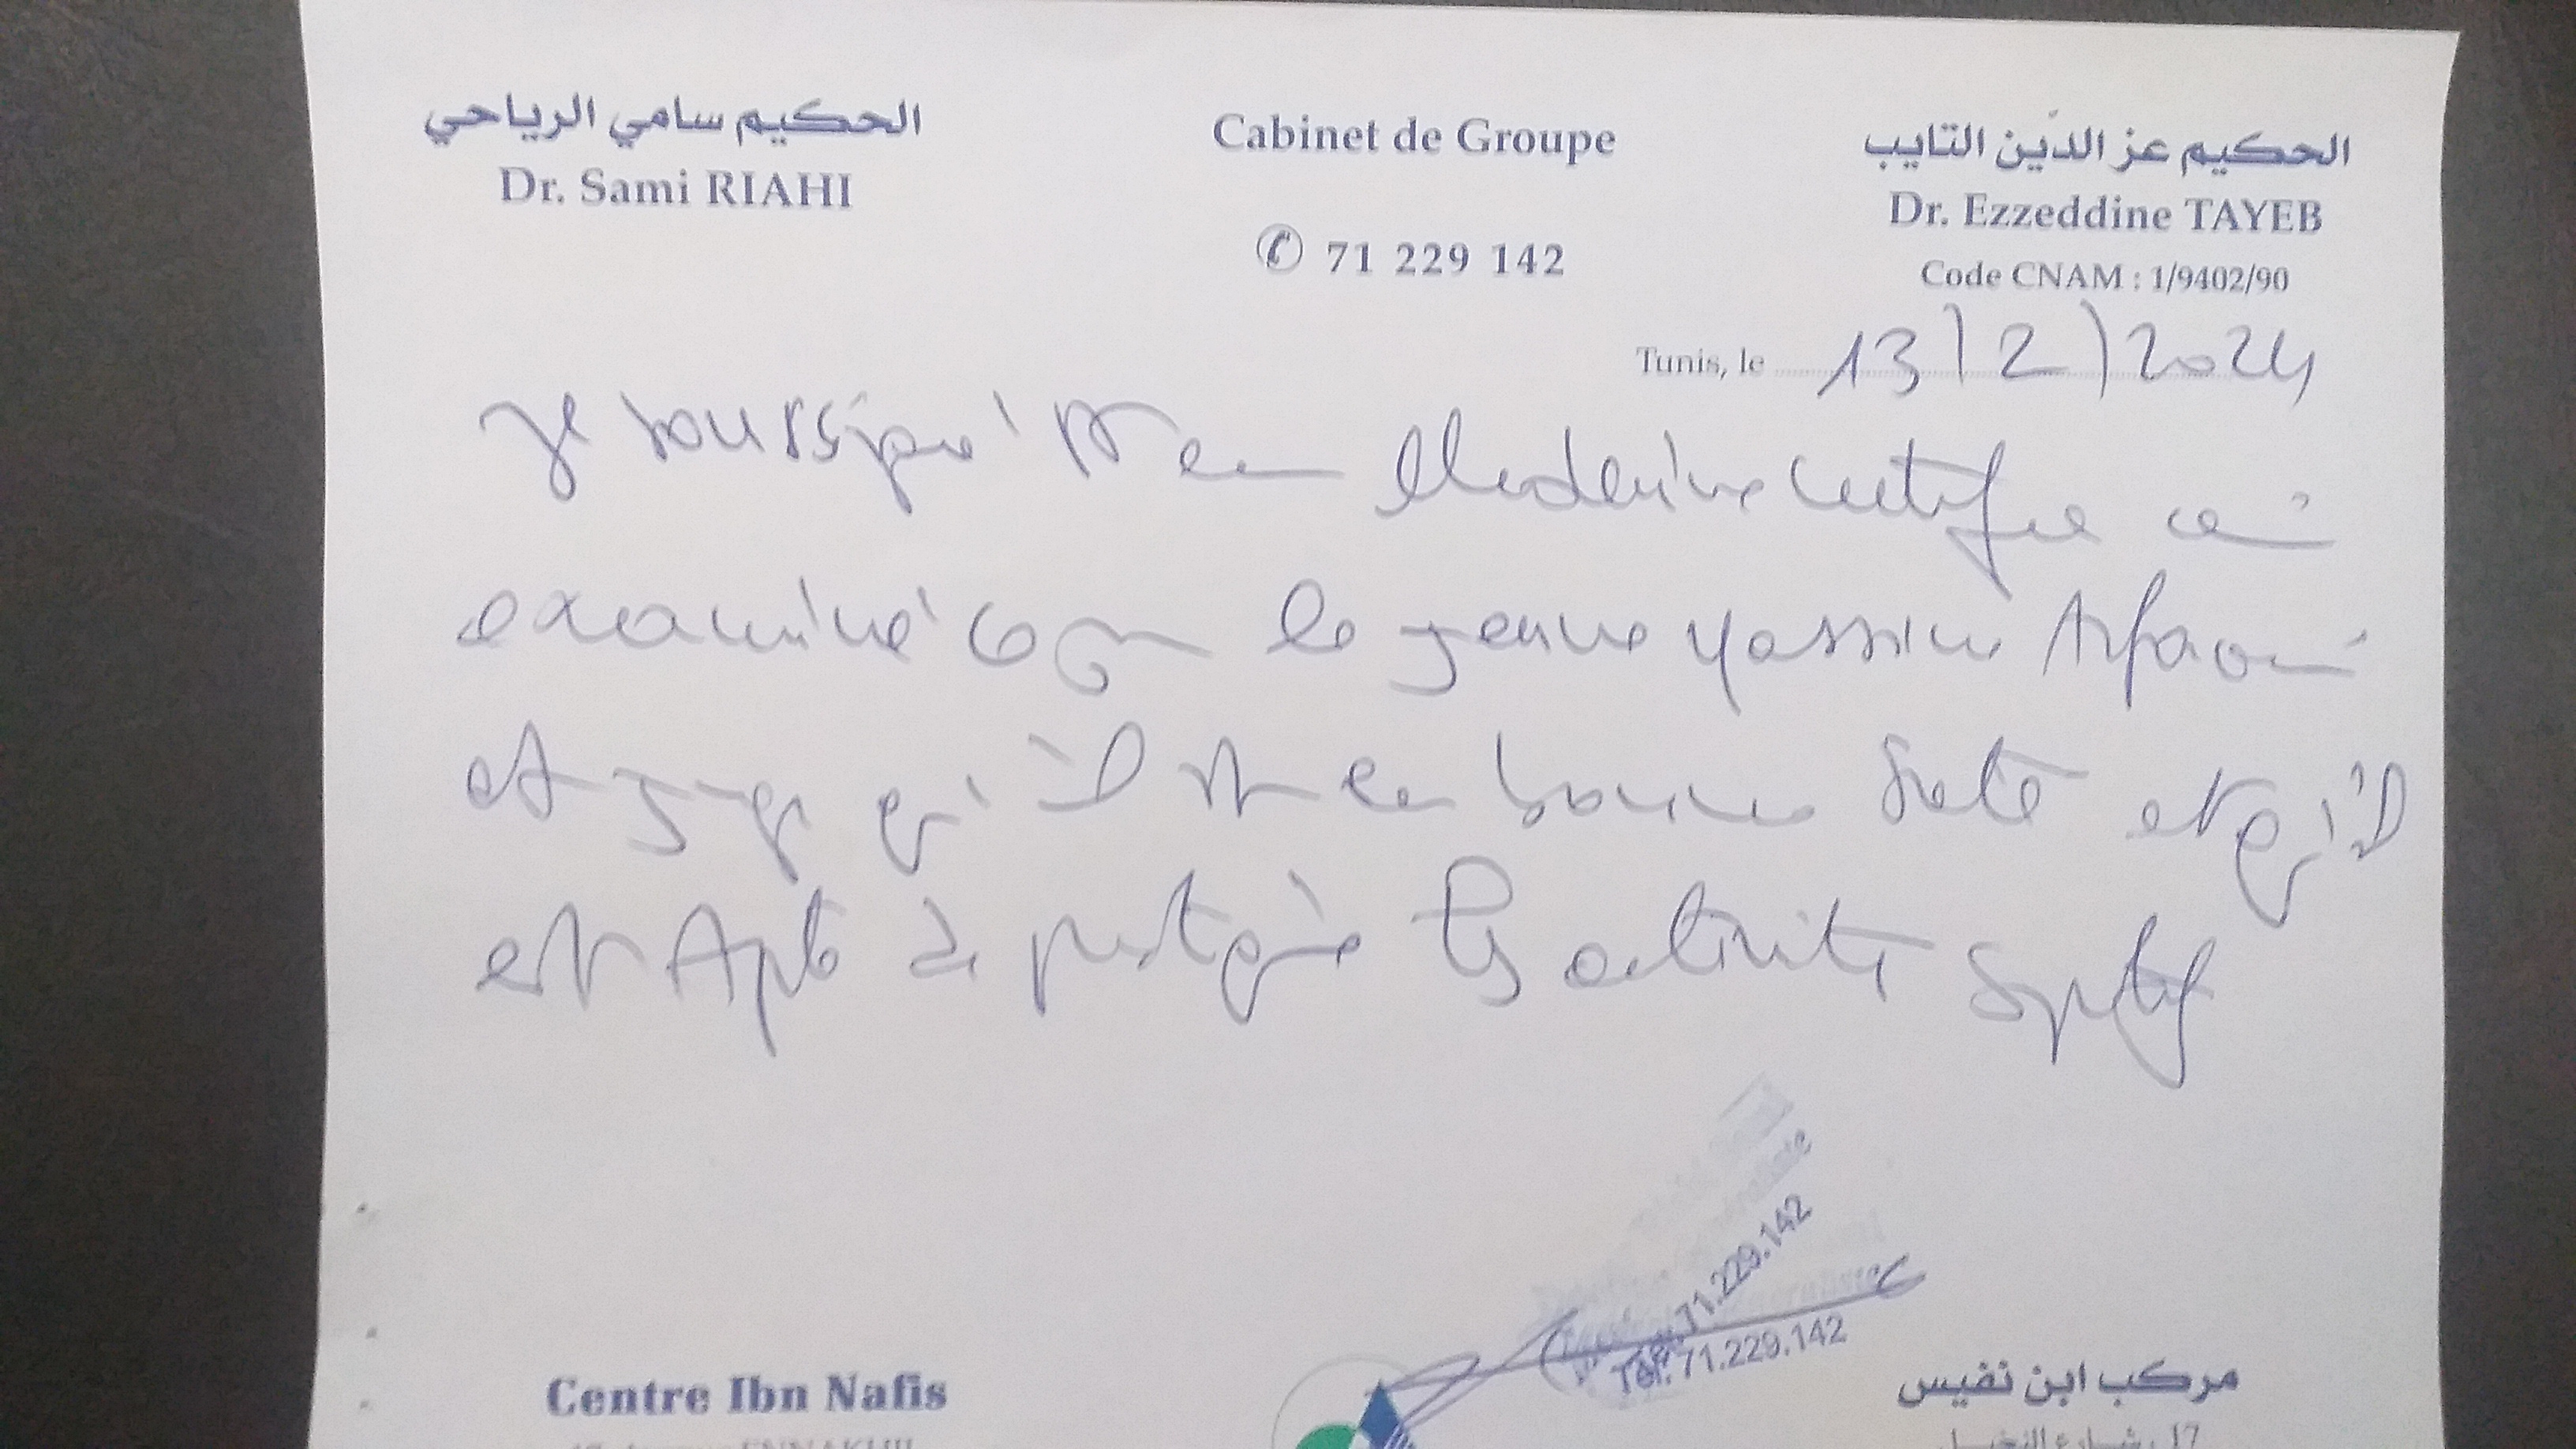 الحكيم سامي الرياحي
Dr. Sami RIAHI
Cabinet de Groupe
✆ 71 229 142
الحكيم عز الدّين التايب
Dr. Ezzeddine TAYEB
Code CNAM : 1/9402/90
Tunis, le 13/2/2024
Je soussigné Dr en Medecine certifie avoir
examiné ce jour le jeune Yassine Arfaoui
et juge qu'il est en bonne santé et qu'il
est Apte à pratiquer les activités sportives
71.229.142
Tél: 71.229.142
Centre Ibn Nafis
مركب ابن نفيس
17، شارع النخيل